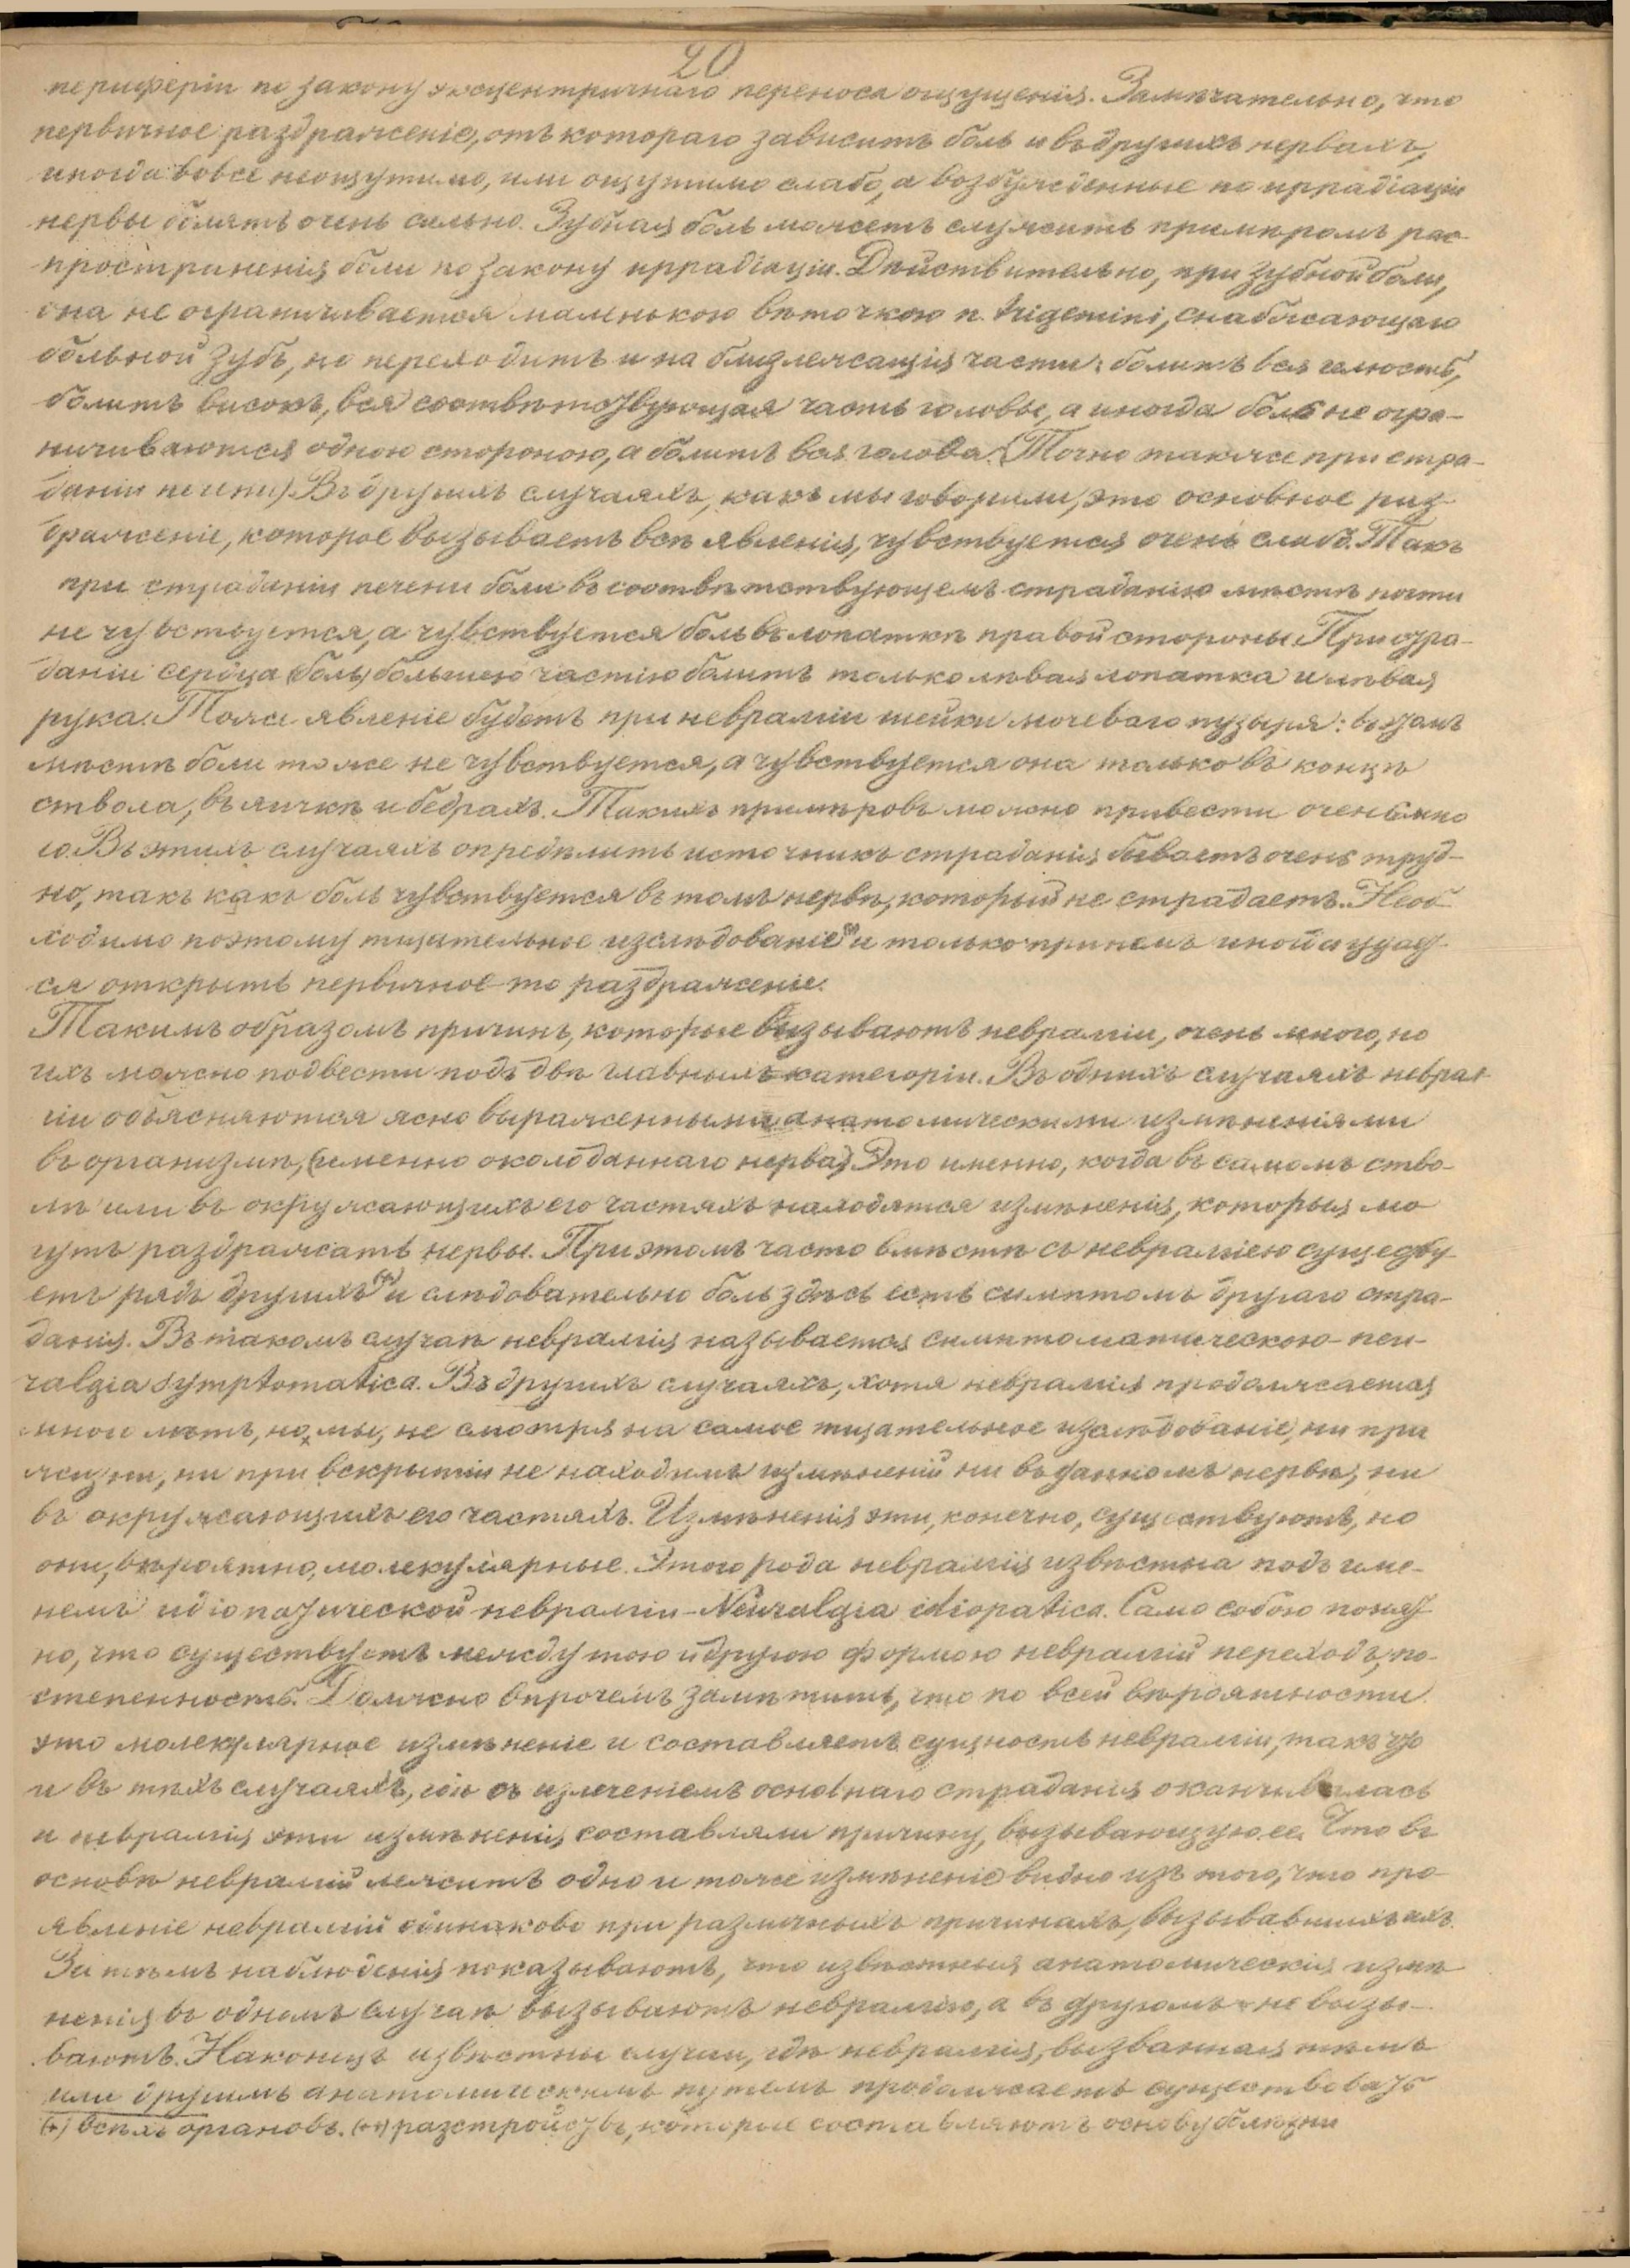 20
периферіи по закону эксцентричнаго переноса ощущенія. Замѣчательно, что
первичное раздраженіе, отъ котораго зависитъ боль и въ другихъ нервахъ,
иногда вовсе неощутимо, или ощутимо слабо, а возбужденные по иррадіаціи
нервы болятъ очень сильно. Зубная боль можетъ служить примѣромъ рас-
пространенія боли по закону иррадіаціи. Дѣйствительно, при зубной боли,
она не ограничивается маленькою вѣточкою n. trigemini, снабжающаго
больной зубъ, но переходитъ и на близлежащія части: болитъ вся челюсть,
болитъ високъ, вся соотвѣтствующая часть головы, а иногда боль не огра-
ничиваются одною стороною, а болитъ вся голова. (Точно также при стра-
даніи печени). Въ другихъ случаяхъ, какъ мы говорили, это основное раз-
драженіе, которое вызываетъ всѣ явленія, чувствуется очень слабо. Такъ
при страданіи печени боли въ соотвѣтствующемъ страданію мѣстѣ почти
не чувствуется, а чувствуется боль въ лопаткѣ правой стороны. При стра-
даніи сердца (боль) большею частію болитъ только лѣвая лопатка и лѣвая
рука. Тоже явленіе будетъ при невралгіи шейки мочеваго пузыря: въ этомъ
мѣстѣ боли тоже не чувствуется, а чувствуется она только въ концѣ
ствола, въ яичкѣ и бедрахъ. Такихъ примѣровъ можно привести очень мно
го. Въ этихъ случаяхъ опредѣлить источникъ страданія бываетъ очень труд-
но, такъ какъ боль чувствуется въ томъ нервѣ, который не страдаетъ. Необ-
ходимо поэтому тщательное изслѣдованіе (+) и только при немъ иногда удает-
ся открыть первичное то раздраженіе.
Такимъ образомъ причинъ, которые вызываютъ невралгіи, очень много, но
ихъ можно подвести подъ двѣ главныхъ категоріи. Въ однихъ случаяхъ неврал-
гіи объясняются ясно выраженными анатомическими измѣненіями
въ организмѣ, (именно около даннаго нерва). Это именно, когда въ самомъ ство-
лѣ или въ окружающихъ его частяхъ находятся измѣненія, которыя мо
гутъ раздражать нервы. При этомъ часто вмѣстѣ съ невралгіею существу-
етъ рядъ другихъ (++) и слѣдовательно боль здѣсь есть симптомъ другаго стра-
данія. Въ такомъ случаѣ невралгія называется симптоматическою - neu-
ralgia symptomatica. Въ другихъ случаяхъ, хотя невралгія продолжается
много лѣтъ, но мы, не смотря на самое тщательное изслѣдованіе, ни при
жизни, ни при вскрытіи не находимъ измѣненій ни въ данномъ нервѣ, ни
въ окружающихъ его частяхъ. Измѣненія эти, конечно, существуютъ, но
они, вѣроятно, молекулярные. Этого рода невралгія извѣстна подъ име-
немъ идіопатической невралгіи - Neuralgia idiopatica. Само собою понят-
но, что существуетъ между тою и другою формою невралгій переходъ, по-
степенность. Должно впрочемъ замѣтить, что по всей вѣроятности
это молекулярное измѣненіе и составляетъ сущность невралгіи, такъ что
и въ тѣхъ случаяхъ, где съ излеченіемъ основнаго страданія оканчивалась
и невралгія эти измѣненія составляли причину, вызывающую ее. Что въ
основѣ невралгій лежитъ одно и тоже измѣненіе видно изъ того, что про-
явленіе невралгій одинаково при различныхъ причинахъ, вызывавшихъ ихъ.
За тѣмъ наблюденія показываютъ, что извѣстныя анатомическія измѣ-
ненія въ одномъ случаѣ вызываютъ невралгію, а въ другомъ не вызы-
ваютъ. Наконецъ извѣстны случаи, гдѣ невралгія, вызванная тѣмъ
или другимъ анатомическимъ путемъ продолжаетъ существовать
(+) всѣхъ органовъ. (++) разстройствъ, которые составляютъ основу болѣзни